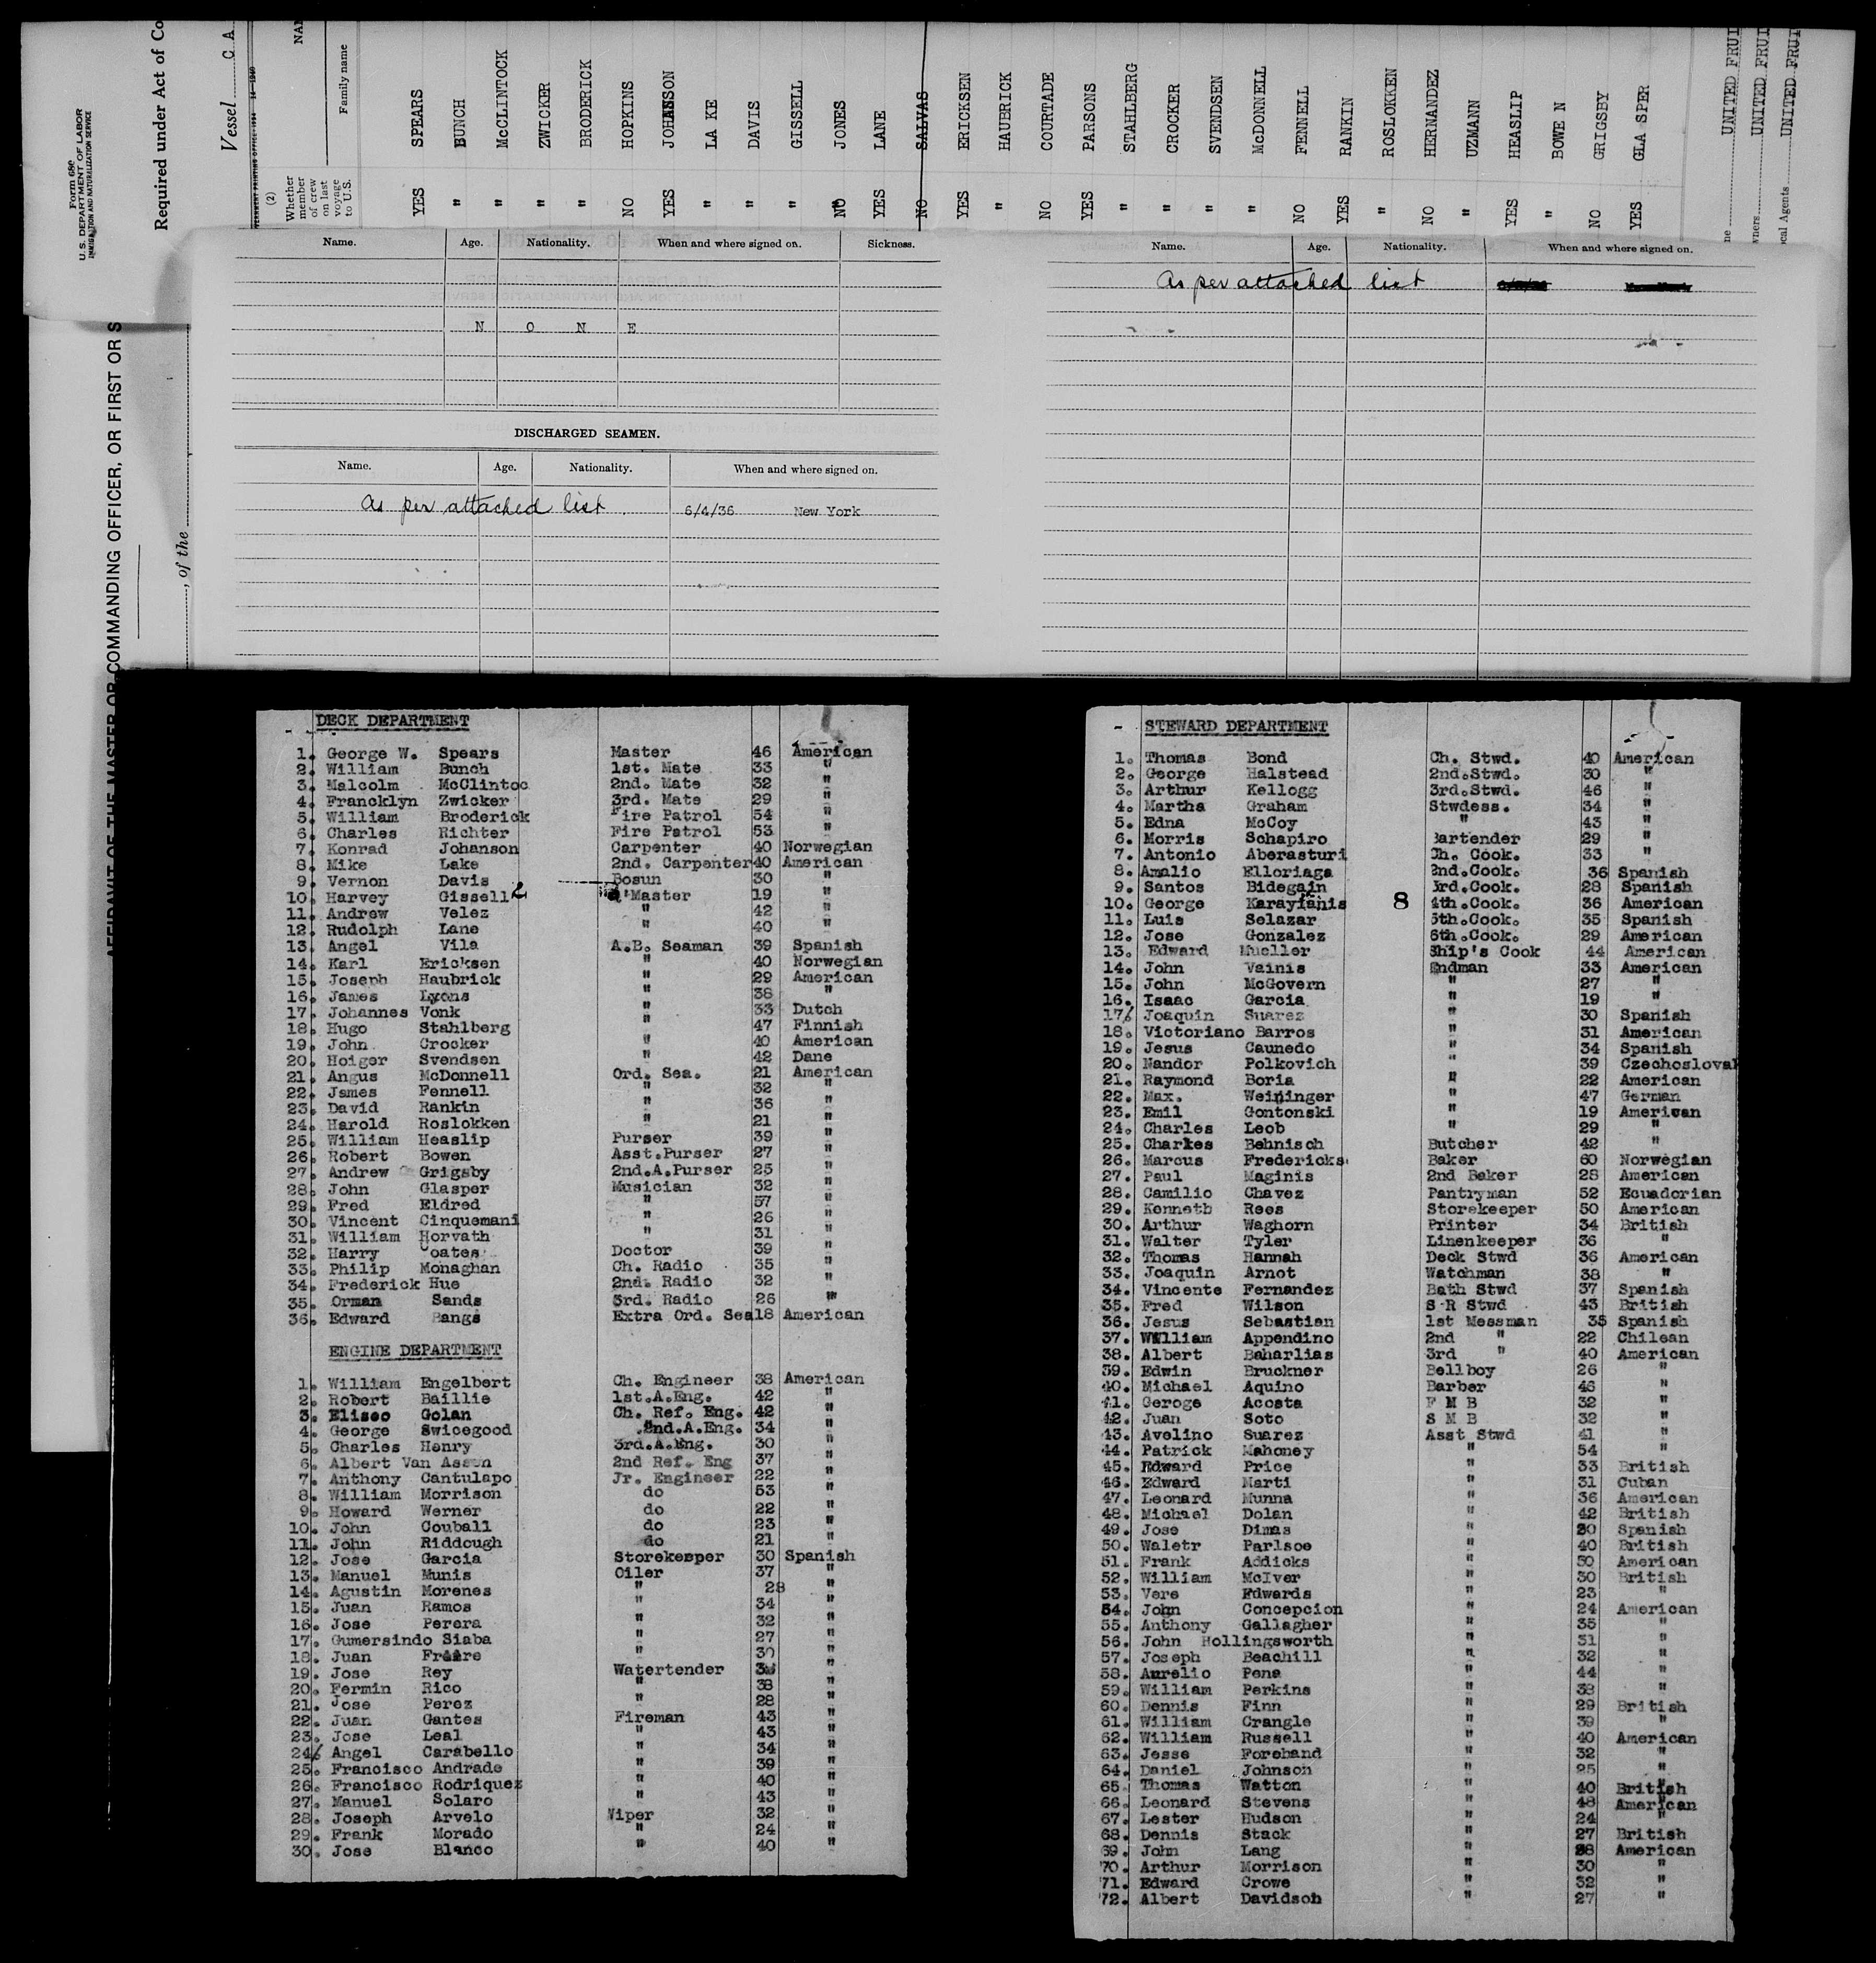 Form 689
U. S. DEPARTMENT OF LABOR
IMMIGRATION AND NATURALIZATION SERVICE
Required under Act of Co
Vessel C A
(2)
Whether member of crew on last voyage to U.S.
Family name
YES SPEARS
" BUNCH
" McCLINTOCK
" ZWICKER
" BRODERICK
NO HOPKINS
YES JOHANSON
" LA KE
" DAVIS
" GISSELL
NO JONES
YES LANE
NO SALVAS
YES ERICKSEN
" HAUBRICK
NO COURTADE
YES PARSONS
" STAHLBERG
" CROCKER
" SVENDSEN
" McDONNELL
NO FENNELL
YES RANKIN
" ROSLOKKEN
NO HERNANDEZ
" UZMANN
YES HEASLIP
" BOWE N
NO GRIGSBY
YES GLA SPER
UNITED FRUI
UNITED FRUI
cal Agents UNITED FRUI
AFFIDAVIT OF THE MASTER OR COMMANDING OFFICER, OR FIRST OR S
, of the
Name. Age. Nationality. When and where signed on. Sickness.
N O N E
DISCHARGED SEAMEN.
Name. Age. Nationality. When and where signed on.
As per attached list 6/4/36 New York
Name. Age. Nationality. When and where signed on.
As per attached list
DECK DEPARTMENT
1. George W. Spears Master 46 American
2. William Bunch 1st. Mate 33 "
3. Malcolm McClintoc 2nd. Mate 32 "
4. Francklyn Zwicker 3rd. Mate 29 "
5. William Broderick Fire Patrol 54 "
6. Charles Richter Fire Patrol 53 "
7. Konrad Johanson Carpenter 40 Norwegian
8. Mike Lake 2nd. Carpenter 40 American
9. Vernon Davis Bosun 30 "
10. Harvey Gissell Master 19 "
11. Andrew Velez " 42 "
12. Rudolph Lane " 40 "
13. Angel Vila A.B. Seaman 39 Spanish
14. Karl Ericksen " 40 Norwegian
15. Joseph Haubrick " 29 American
16. James Lyons " 38 "
17. Johannes Vonk " 33 Dutch
18. Hugo Stahlberg " 47 Finnish
19. John Crocker " 40 American
20. Hoiger Svendsen " 42 Dane
21. Angus McDonnell Ord. Sea. 21 American
22. James Fennell " 32 "
23. David Rankin " 36 "
24. Harold Roslokken " 21 "
25. William Heaslip Purser 39 "
26. Robert Bowen Asst.Purser 27 "
27. Andrew Grigsby 2nd.A.Purser 25 "
28. John Glasper Musician 32 "
29. Fred Eldred " 57 "
30. Vincent Cinquemani " 26 "
31. William Horvath " 31 "
32. Harry Coates Doctor 39 "
33. Philip Monaghan Ch. Radio 35 "
34. Frederick Hue 2nd. Radio 32 "
35. Orman Sands 3rd. Radio 26 "
36. Edward Bangs Extra Ord. Sea 18 American
ENGINE DEPARTMENT
1. William Engelbert Ch. Engineer 38 American
2. Robert Baillie 1st.A.Eng. 42 "
3. Eliseo Golan Ch. Ref. Eng. 42 "
4. George Swicegood 2nd.A.Eng. 34 "
5. Charles Henry 3rd.A.Eng. 30 "
6. Albert Van Assen 2nd Ref. Eng 37 "
7. Anthony Cantulapo Jr. Engineer 22 "
8. William Morrison do 53 "
9. Howard Werner do 22 "
10. John Couball do 23 "
11. John Riddough do 21 "
12. Jose Garcia Storekeeper 30 Spanish
13. Manuel Munis Oiler 37 "
14. Agustin Morenes " 28 "
15. Juan Ramos " 34 "
16. Jose Perera " 32 "
17. Gumersindo Siaba " 27 "
18. Juan Freire " 30 "
19. Jose Rey Watertender "
20. Fermin Rico " 38 "
21. Jose Perez " 28 "
22. Juan Gantes Fireman 43 "
23. Jose Leal " 43 "
24. Angel Carabello " 34 "
25. Francisco Andrade " 39 "
26. Francisco Rodriquez " 40 "
27. Manuel Solaro " 43 "
28. Joseph Arvelo Wiper 32 "
29. Frank Morado " 24 "
30. Jose Blanco " 40 "
STEWARD DEPARTMENT
1. Thomas Bond Ch. Stwd. 40 American
2. George Halstead 2nd.Stwd. 30 "
3. Arthur Kellogg 3rd.Stwd. 46 "
4. Martha Graham Stwdess. 34 "
5. Edna McCoy " 43 "
6. Morris Schapiro Bartender 29 "
7. Antonio Aberasturi Ch. Cook. 33 "
8. Amalio Elloriaga 2nd.Cook. 36 Spanish
9. Santos Bidegain 3rd.Cook. 28 Spanish
10. George Karayianis 8 4th.Cook. 36 American
11. Luis Selazar 5th.Cook. 35 Spanish
12. Jose Gonzalez 6th.Cook. 29 American
13. Edward Mueller Ship's Cook 44 American
14. John Vainis Endman 33 American
15. John McGovern " 27 "
16. Isaac Garcia " 19 "
17. Joaquin Suarez " 30 Spanish
18. Victoriano Barros " 31 American
19. Jesus Caunedo " 34 Spanish
20. Nandor Polkovich " 39 Czechoslovak
21. Raymond Boria " 22 American
22. Max. Weininger " 47 German
23. Emil Gontonski " 19 American
24. Charles Leob " 29 "
25. Charles Behnisch Butcher 42 "
26. Marcus Fredericks Baker 60 Norwegian
27. Paul Maginis 2nd Baker 28 American
28. Camilio Chavez Pantryman 32 Ecuadorian
29. Kenneth Rees Storekeeper 50 American
30. Arthur Waghorn Printer 34 British
31. Walter Tyler Linenkeeper 36 "
32. Thomas Hannah Deck Stwd 36 American
33. Joaquin Arnot Watchman 38 "
34. Vincente Fernandez Bath Stwd 37 Spanish
35. Fred Wilson S-R Stwd 43 British
36. Jesus Sebastien 1st Messman 35 Spanish
37. William Appendino 2nd " 22 Chilean
38. Albert Baharlias 3rd " 40 American
39. Edwin Bruckner Bellboy 26 "
40. Michael Aquino Barber 46 "
41. Geroge Acosta F M B 32 "
42. Juan Soto S M B 32 "
43. Avelino Suarez Asst Stwd 41 "
44. Patrick Mahoney " 54 "
45. Edward Price " 33 British
46. Edward Marti " 31 Cuban
47. Leonard Munna " 36 American
48. Michael Dolan " 42 British
49. Jose Dimas " 30 Spanish
50. Waletr Parlsoe " 40 British
51. Frank Addicks " 50 American
52. William McIver " 30 British
53. Vere Edwards " 23 "
54. John Concepcion " 24 American
55. Anthony Gallagher " 35 "
56. John Hollingsworth " 31 "
57. Joseph Beachill " 32 "
58. Aurelio Pena " 44 "
59. William Perkins " 38 "
60. Dennis Finn " 29 British
61. William Crangle " 39 "
62. William Russell " 40 American
63. Jesse Forehand " 32 "
64. Daniel Johnson " 25 "
65. Thomas Watton " 40 British
66. Leonard Stevens " 48 American
67. Lester Hudson " 24 "
68. Dennis Stack " 27 British
69. John Lang " 38 American
70. Arthur Morrison " 30 "
71. Edward Crowe " 32 "
72. Albert Davidson " 27 "